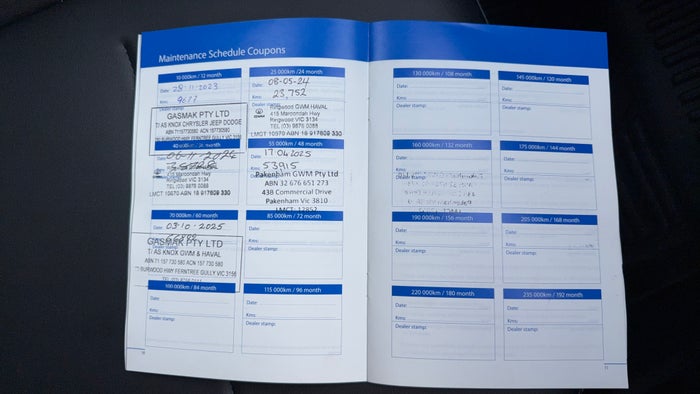 Maintenance Schedule Coupons
10 000km / 12 month
Date: 28-11-2023
Kms: 9677
Dealer stamp:
GASMAK PTY LTD
T/ AS KNOX CHRYSLER JEEP DODGE
ABN 71157730580 ACN 157730580
BURWOOD HWY FERNTREE GULLY VIC
25 000km / 24 month
Date: 08-05-24
Kms: 23,752
Dealer stamp:
Ringwood GWM HAVAL
Maroondah Hwy
Ringwood VIC 3134
TEL (03) 9876 0088
LMCT 10570 ABN 16 917609 330
06-11-2024
Ringwood VIC 3134
TEL (03) 9876 0088
LMCT: 10570 ABN 16 917609 330
55 000km / 48 month
Date: 17-04-2025
53915
Pakenham GWM Pty Ltd
ABN 32 676 651 273
Commercial Drive
Pakenham Vic 3810
70 000km / 60 month
Date: 03-10-2025
GASMAK PTY LTD
T/ AS KNOX GWM & HAVAL
ABN 71 157 730 580 ACN 157 730 580
BURWOOD HWY FERNTREE GULLY VIC 3156
85 000km / 72 month
Date:
Kms:
Dealer stamp:
100 000km / 84 month
Date:
Kms:
Dealer stamp:
115 000km / 96 month
Date:
Kms:
Dealer stamp:
130 000km / 108 month
Date:
Kms:
Dealer stamp:
145 000km / 120 month
Date:
Kms:
Dealer stamp:
160 000km / 132 month
Date:
Kms:
175 000km / 144 month
Date:
Kms:
Dealer stamp:
190 000km / 156 month
Date:
Kms:
Dealer stamp:
205 000km / 168 month
Date:
Kms:
Dealer stamp:
220 000km / 180 month
Date:
Kms:
Dealer stamp:
235 000km / 192 month
Date:
Kms:
Dealer stamp: